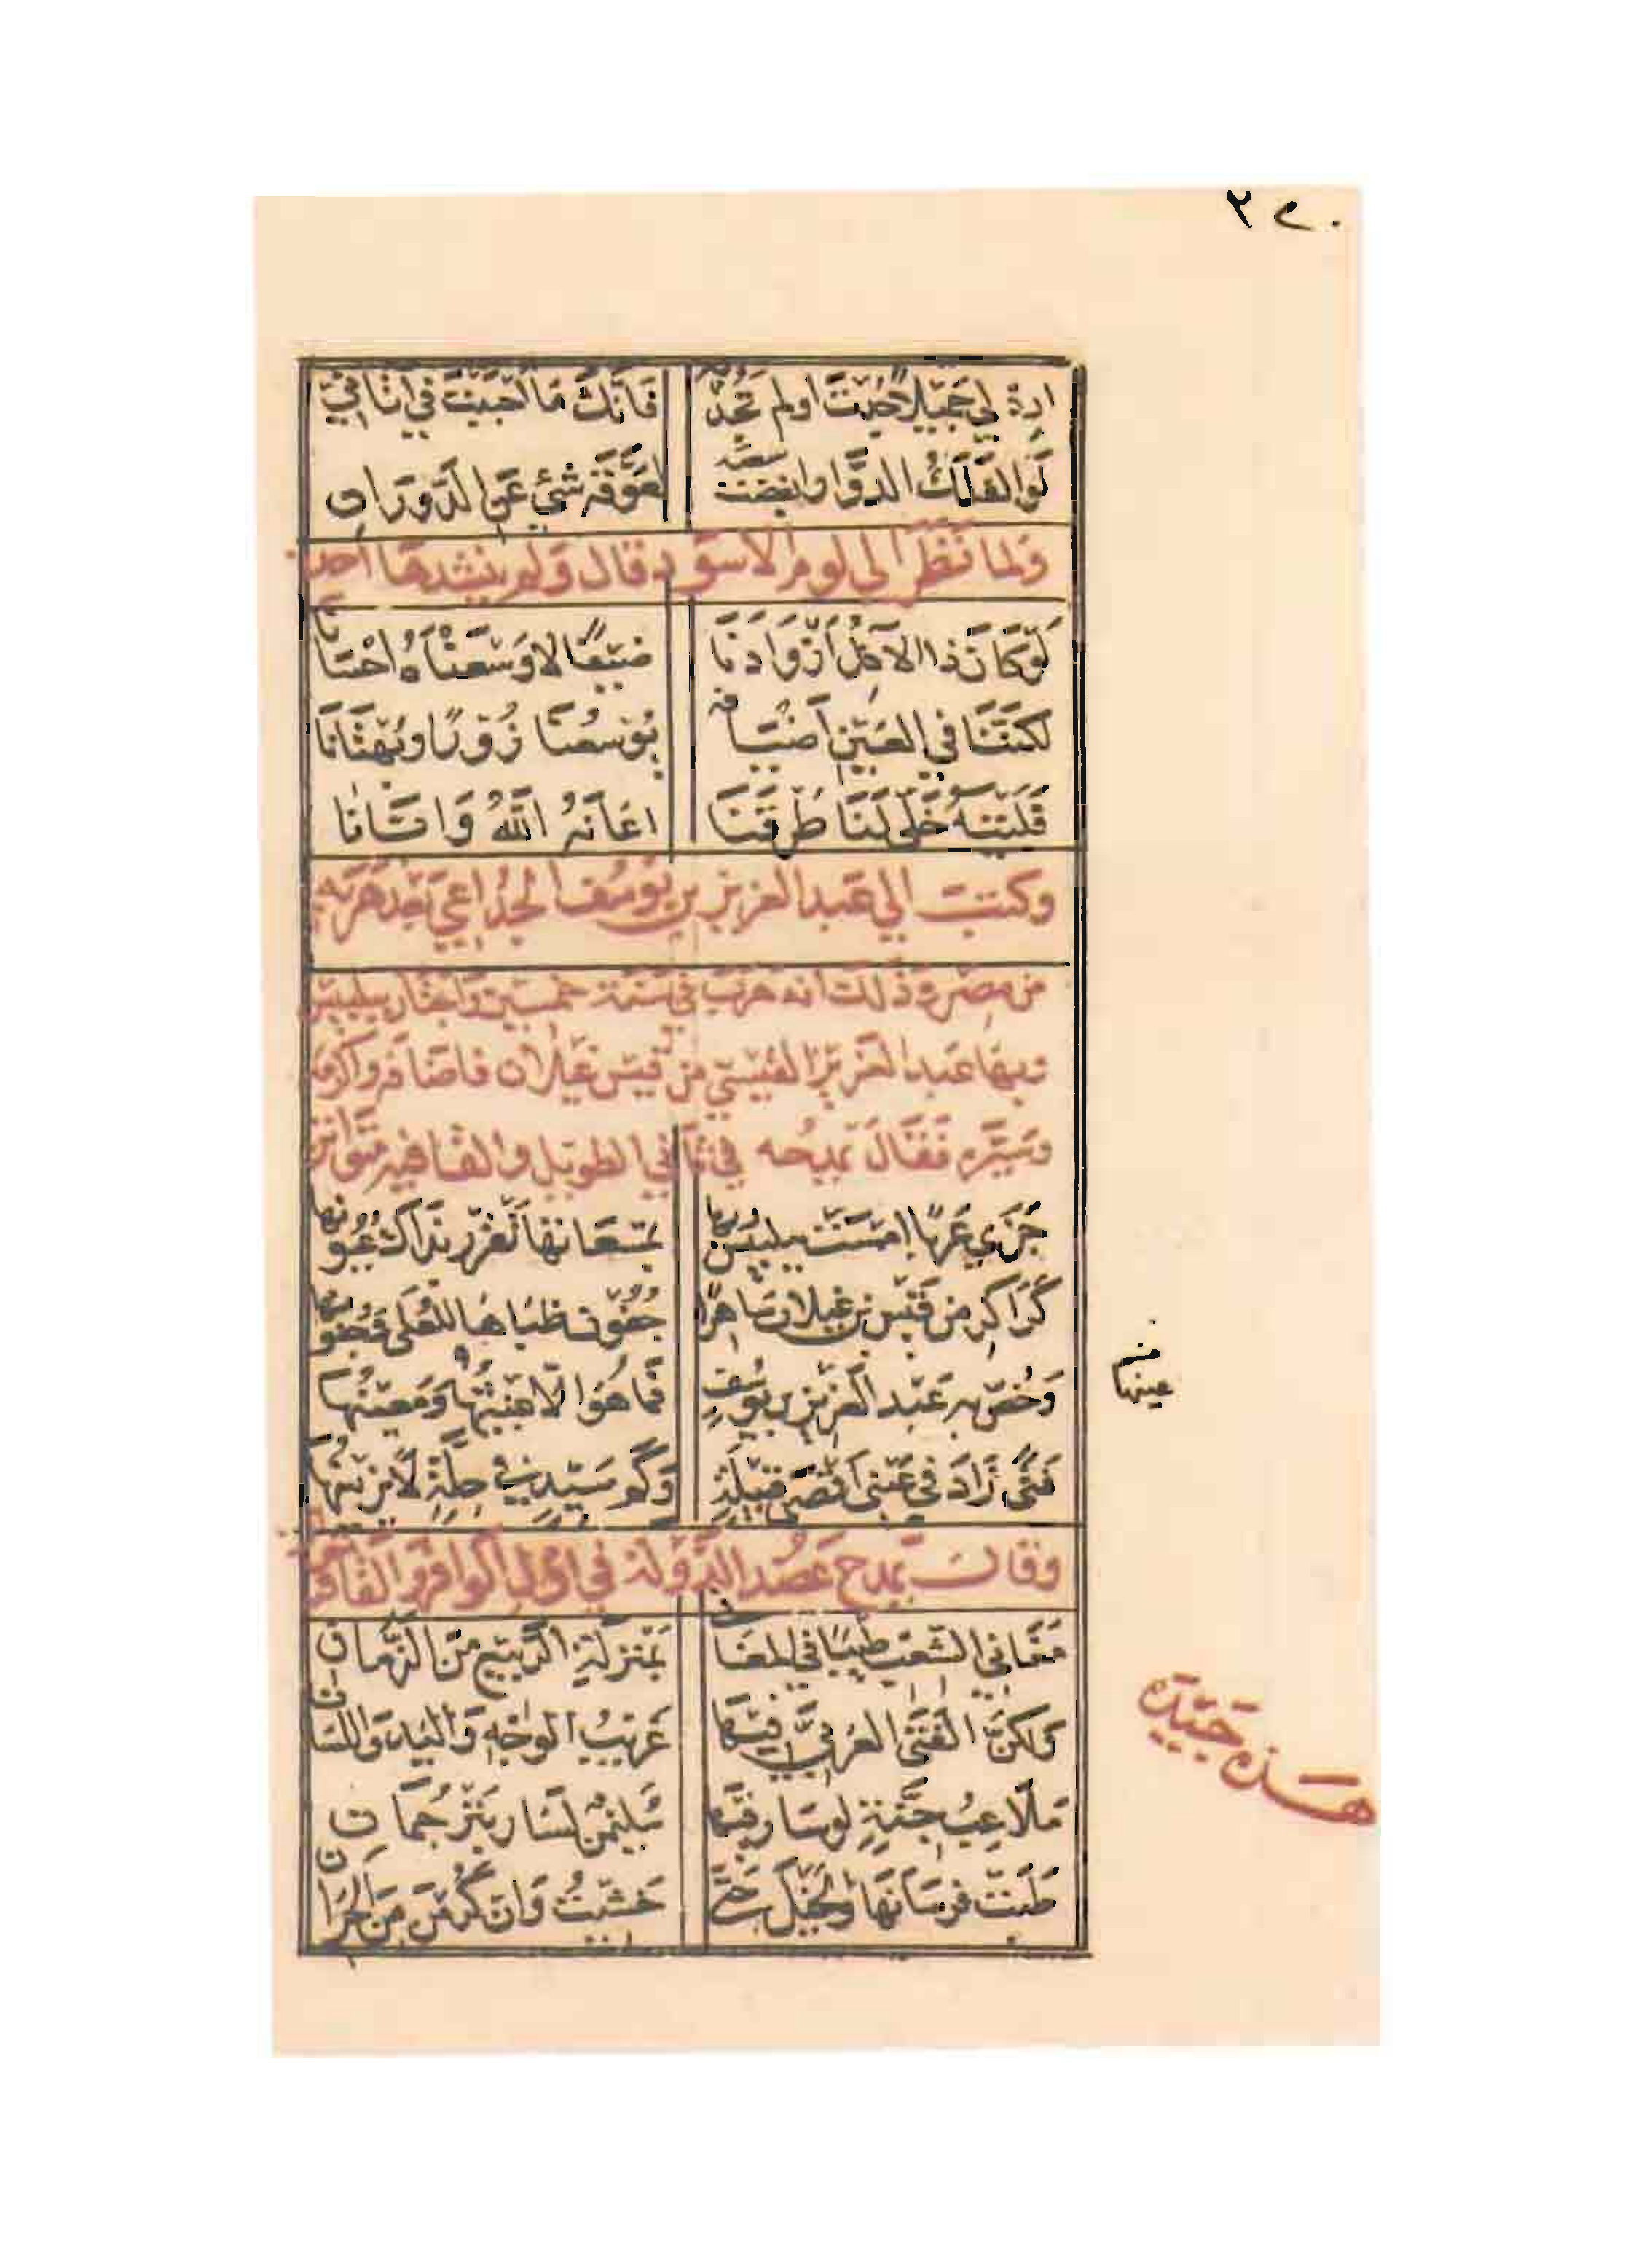 ٢٤٠
ارد لي جميلا جُدتَ اولم تَجُد به فانك ما احببت في اتاني
لَوِ الفَلَكُ الدوّار ابغضت سعيه لعوّقه شئ عن الدَّوَران
ولما نظر الى لوم الاسود قال ولم ينشدها احدا
لَو كانَ ذا الآكِلُ اَزْوادَنا ضيفًا لاوسعناهُ احسانا
لكننا في العين اضيافه يوسعنا زُورًا وبُهْتانا
فليته خلّى لنا طُرقنا اعانهُ اللهُ وايّانا
وكتب الي عبد العزيز بن يوسف الخزاعي بعد هربه
من مصر وذلك انه هرب في سنة خمسين واجتاز ببلبيس
وبها عبد العزيز القيسي من قيس عيلان فاضافه واكرمه
وسيّره فقال يمدحه في ثاني الطويل والقافيه متواتر
جزى عَربًا امست ببلبيس ربُّها بمسعاتها تقرر بذاك عيونها
كَراكِر من قيس بن عيلان ساهرًا جفون ظباها للعلى وجفونها
وخصّ به عبد العزيز بن يوسف فما هو الا غيثها ومعينها
فتًى زادَ في عيني اقصى قبيلة وكم سيّد في حلّة لا يزينها
منه
عينها
وقال يمدح عضد الدّولة في اول الوافر والقافية
مغاني الشعب طيبًا في المغاني بمنزلة الربيع من الزّمان
ولكنّ الفتى العربيّ فيها غريبُ الوجهِ واليد واللسان
ملاعب جنّة لو سار فيها سليمن لسار بترجمان
طبت فرساننا والخيل حتى خشيتُ وان كرمن من الحران
هذه جيّدة